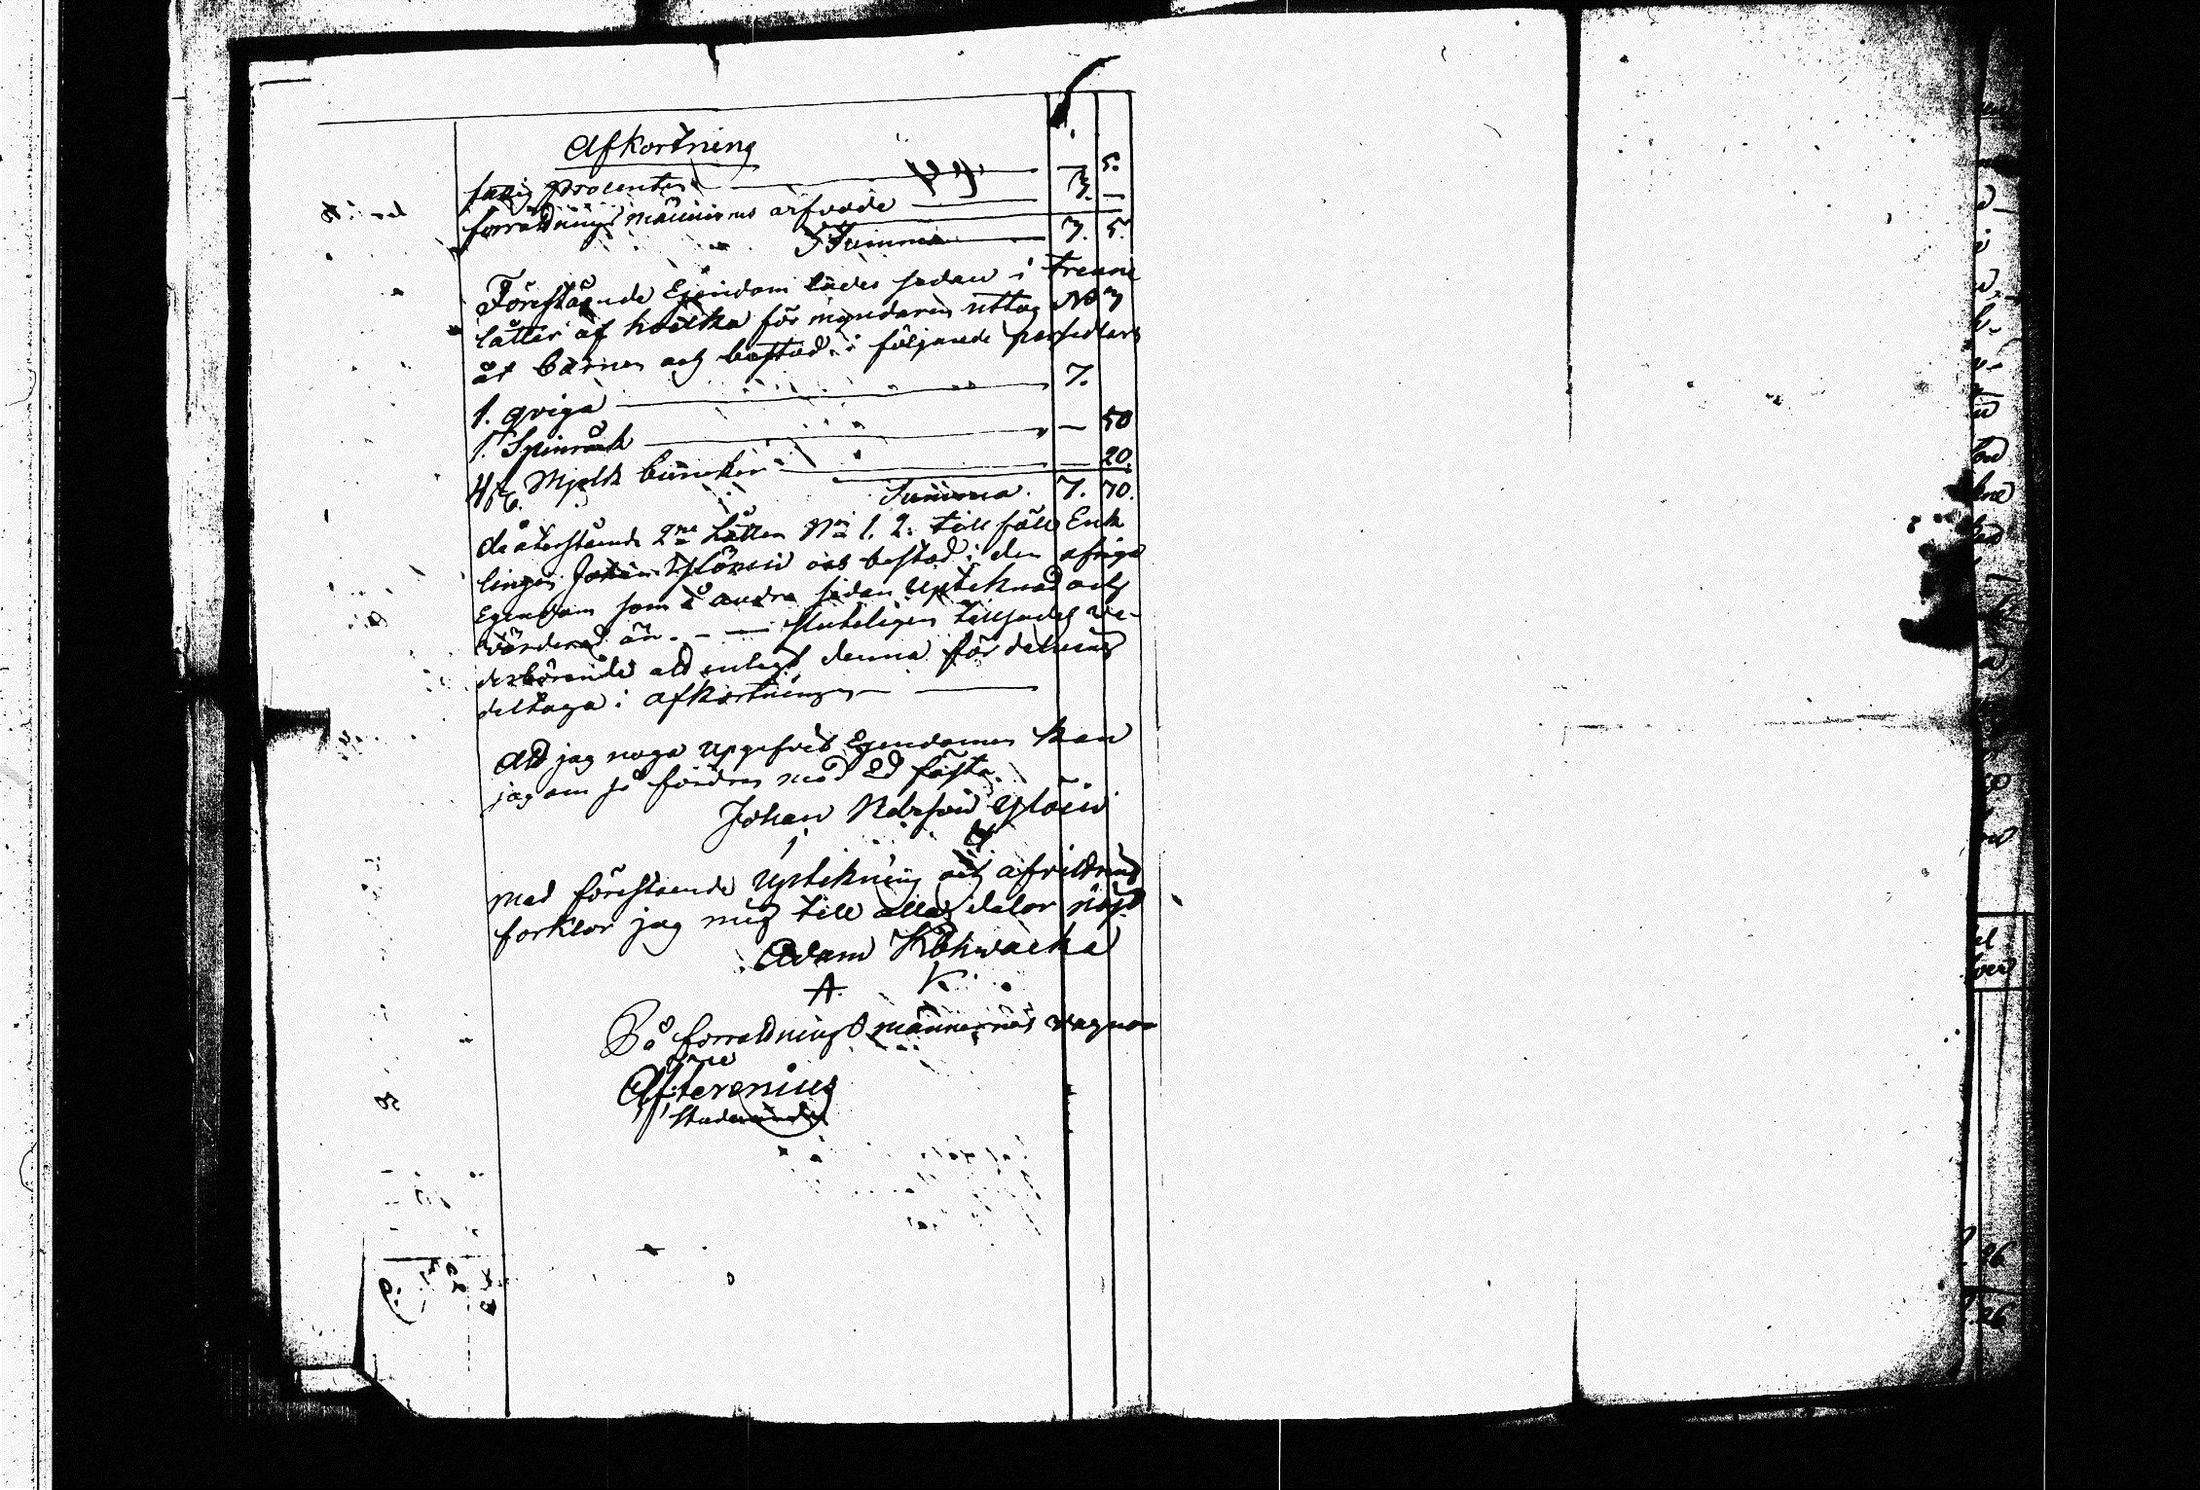 Afkortning
fattig procenten 5.
forrättnings männernes arfvode 3. —
Summa 3. 5.
Förestående Egendom lades sedan i trenne
låtter af hvilka förmyndaren uttog No 3
åt barnen och bestod i följande persedlar
1. qviga 7.
1. Spinråck — 50
4 st. Mjölk bunckar — 20.
Summa. 7. 70.
de återstående 2ne Låtter No 1. 2. tillföll Enk
lingen Johan Ylöin och bestod i den öfriga
Egendom som å andra sidan uptecknad och
värderad är. — — sluteligen tillsades ve-
derbörande att enligt denna fördelning
deltaga i afkortningen
Att jag noga upgifvit Egendomen kan
jag om så fordras med Ed fästa.
Johan Ylöin
med föreståendе upteckning och afvittring
forklar jag mig till alla delar nöjd
Adam Kohwacka
A. K.
På forrättnings männernas vagnar
Afterenius
Studerande